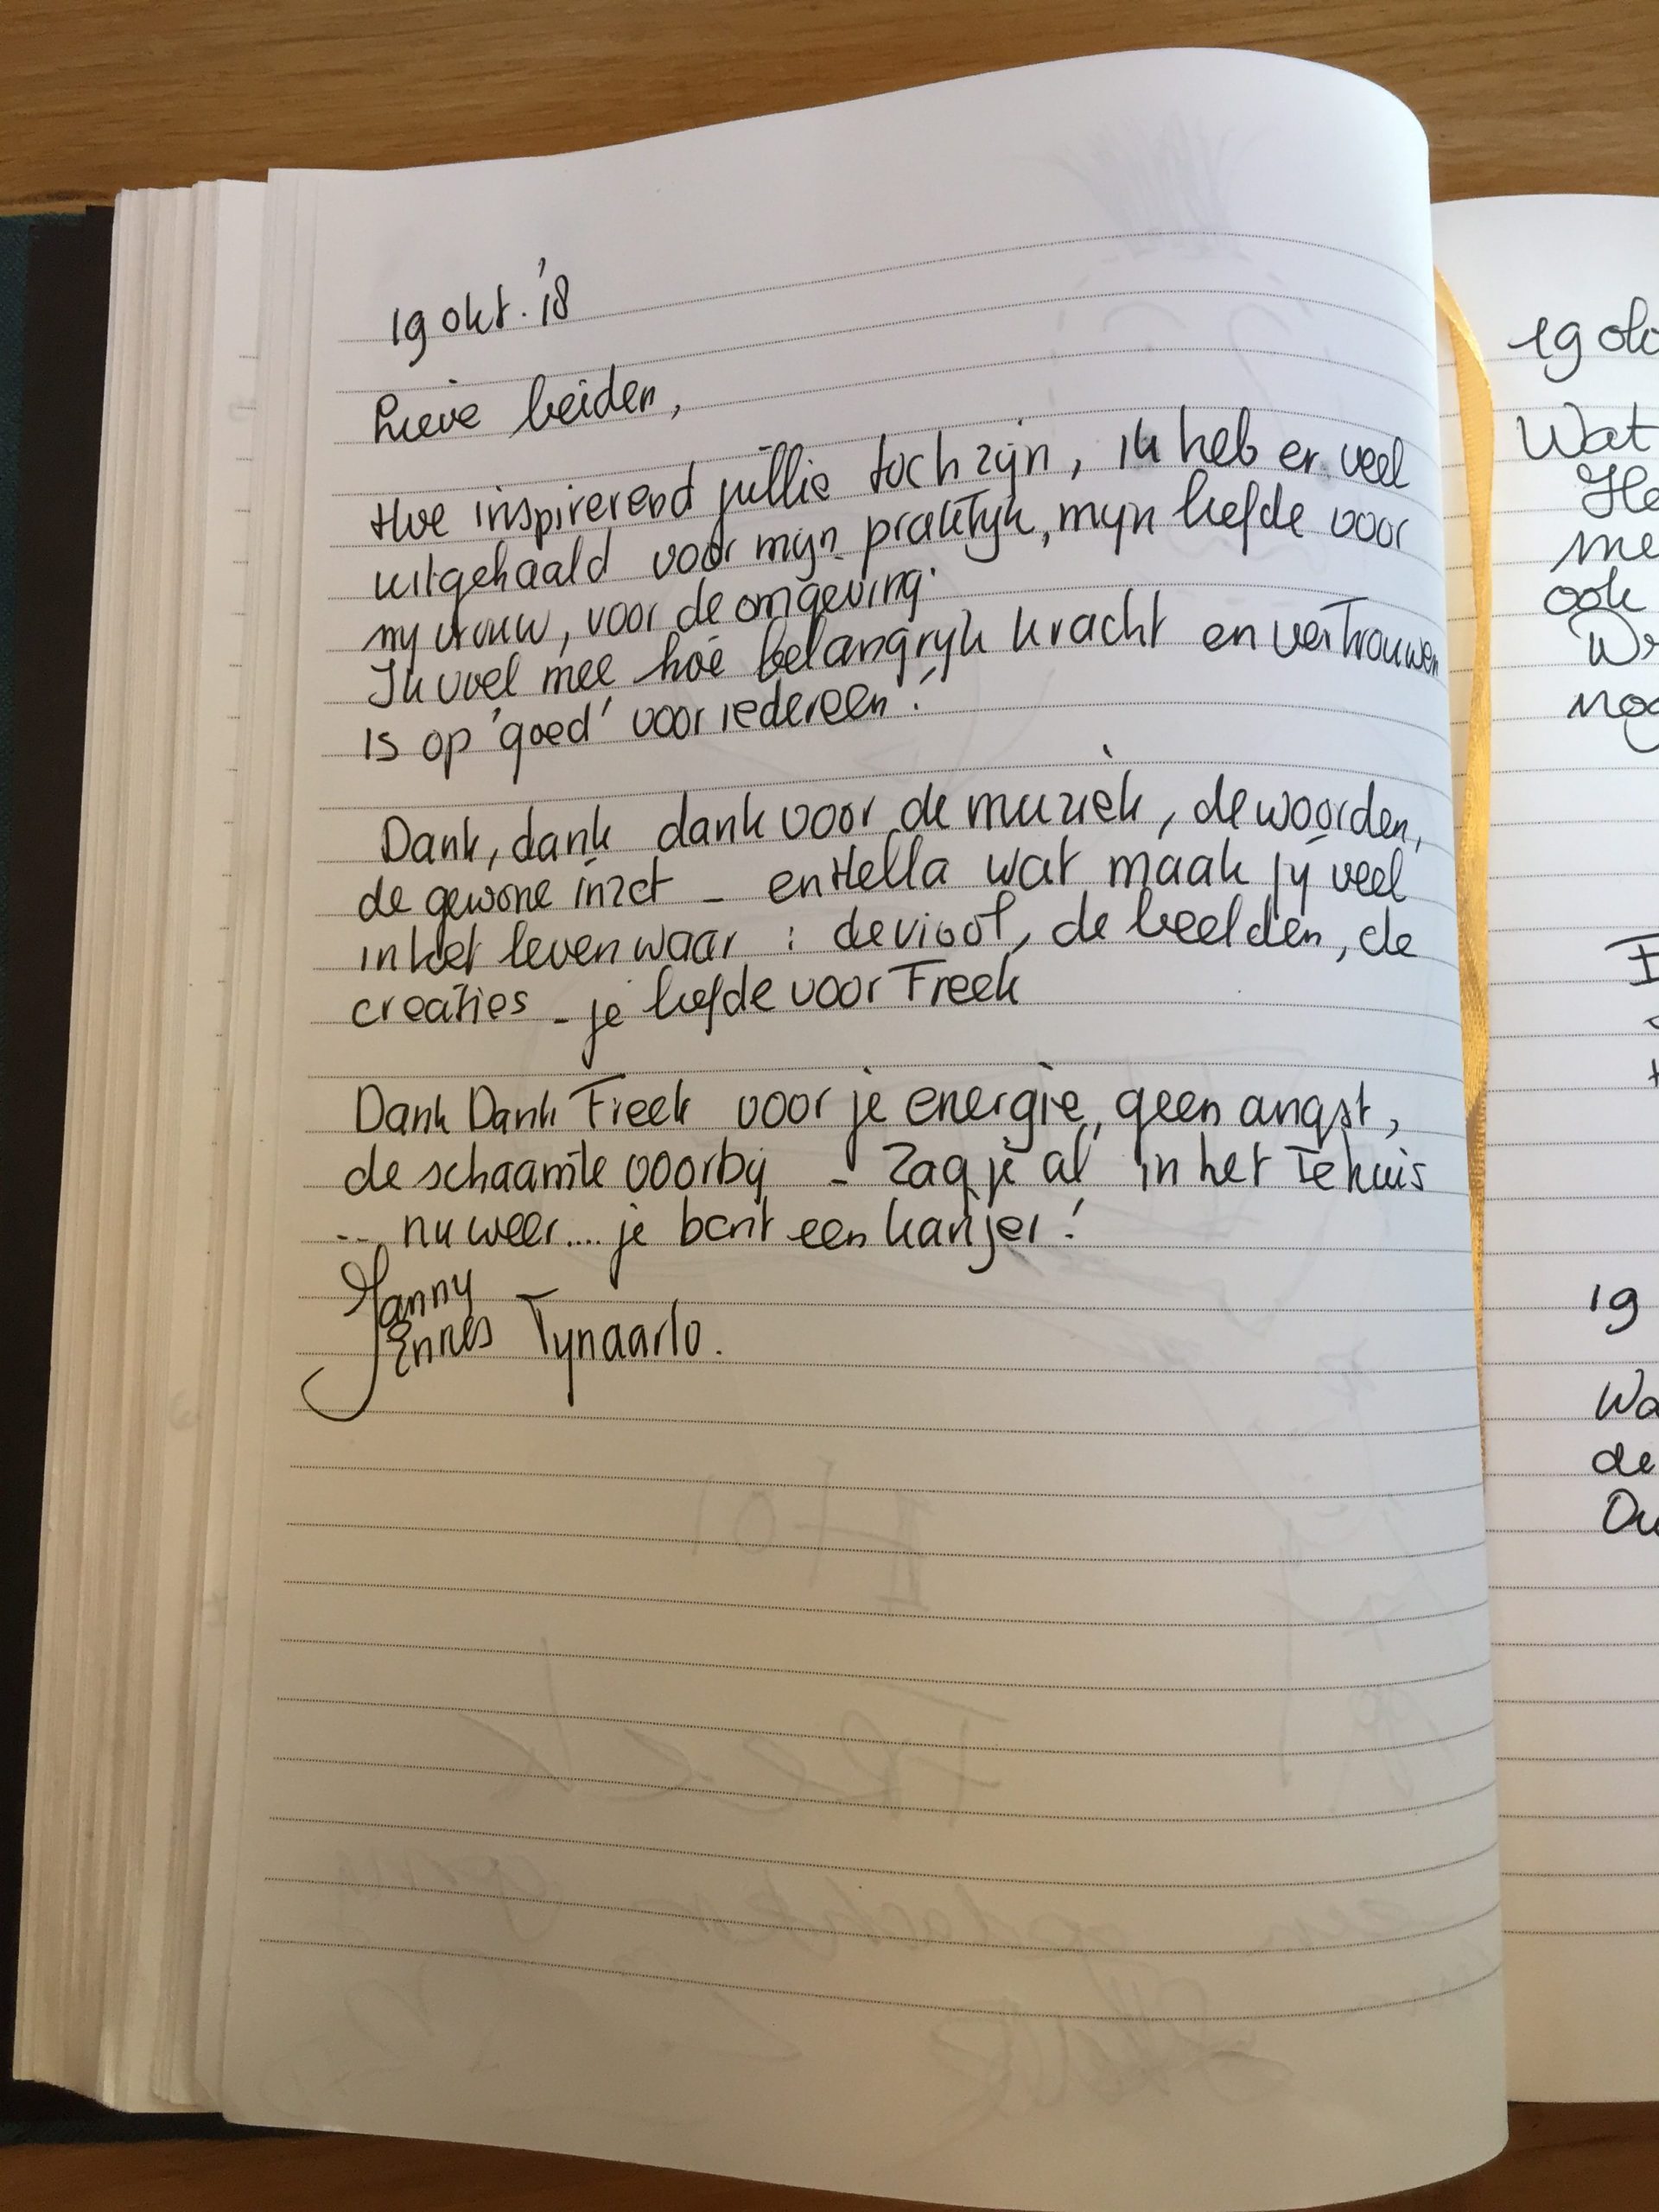 19 okt. '18
Lieve beiden,
Hoe inspirerend jullie toch zijn, ik heb er veel
uitgehaald voor mijn praktijk, mijn liefde voor
mij vrouw, voor de omgeving.
Ik voel mee hoe belangrijk kracht en vertrouwen
is op 'goed' voor iedereen!
Dank, dank dank voor de muziek, de woorden,
de gewone inzet - en Hella wat maak jij veel
in het leven waar : de viool, de beelden, de
creaties - je liefde voor Freek
Dank Dank Freek voor je energie, geen angst,
de schaamte voorbij - Zag je al in het Tehuis
.. nu weer.... je bent een kanjer!
Janny
Ennes Tynaarlo.
19
Wat
me
ook
19
de